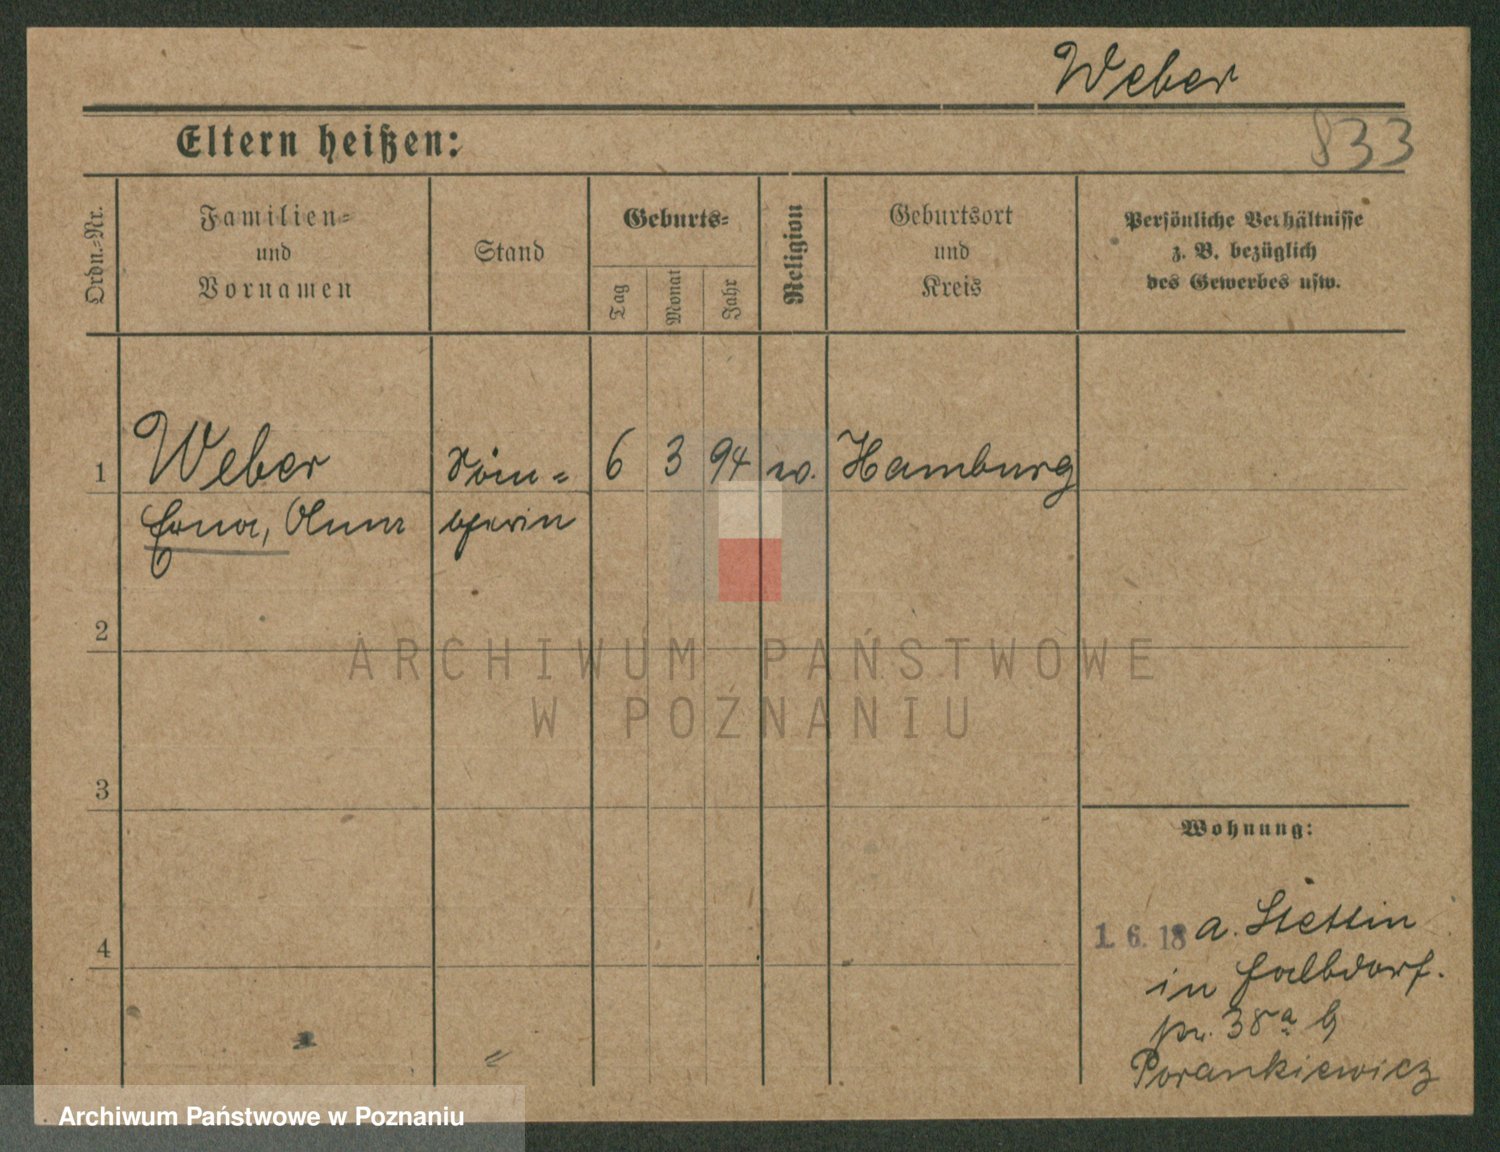 Weber
833
Eltern heißen:
Ordn.-Nr.
Familien=
und
Vornamen
Stand
Geburts=
Tag
Monat
Jahr
Religion
Geburtsort
und
Kreis
Persönliche Verhältnisse
z. B. bezüglich
des Gewerbes usw.
1 Weber 6 3 94 Hamburg
Erna, Anna
2
3
4
Wohnung:
1. 6. 18 a. Stettin
in
38a b
Porankiewicz
ARCHIWUM PAŃSTWOWE
W POZNANIU
Archiwum Państwowe w Poznaniu